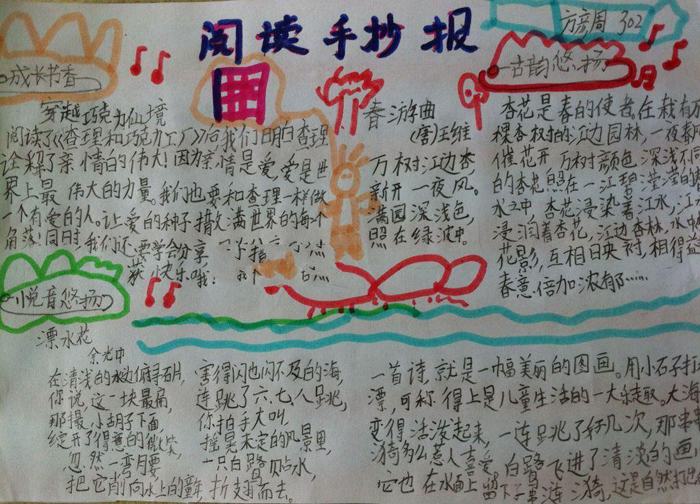 阅读手抄报
方彦周 302
成长书香
古韵悠扬
穿越巧克力仙境
阅读了《查理和巧克力工厂》后我们明白查理
诠释了亲情的伟大！因为亲情是爱，爱是世
界上最伟大的力量。我们也要和查理一样做
一个有爱的人。让爱的种子播满世界的每个
角落！同时，我们还要学会分享
获 快乐哦！
春游曲
(唐)王维
万树江边杏
新开一夜风。
满园深浅色，
照在绿波中。
杏花是春的使者在栽有
棵杏树的江边园林，一夜
催花开，万树颜色，深浅不同
的杏花照在一江碧莹莹的
水之中，杏花浸染着江水，江
浸润着杏花，江边杏林，水中
花影，互相日映衬，相得益
春意倍加浓郁……
悦音悠扬
漂水花
余光中
在清浅的水边俯寻石片，
你说，这一块最扁
那撮小胡子下面
绽开了得意的微笑
忽然一弯腰
把它削向水上的童年，
害得闪也闪不及的海，
连跳了六、七、八跳，
你拍手大叫
摇晃未定的风景里，
一只白鹭贴水，
折翅而去。
一首诗，就是一幅美丽的图画。用小石子打
漂，可称得上是儿童生活的一大乐趣。大
变得活泼起来，一连跳了好几次，那
漪为么惹人喜爱，白鹭飞进了清淡的画
它也在水面上留下一 涟漪，这是自然